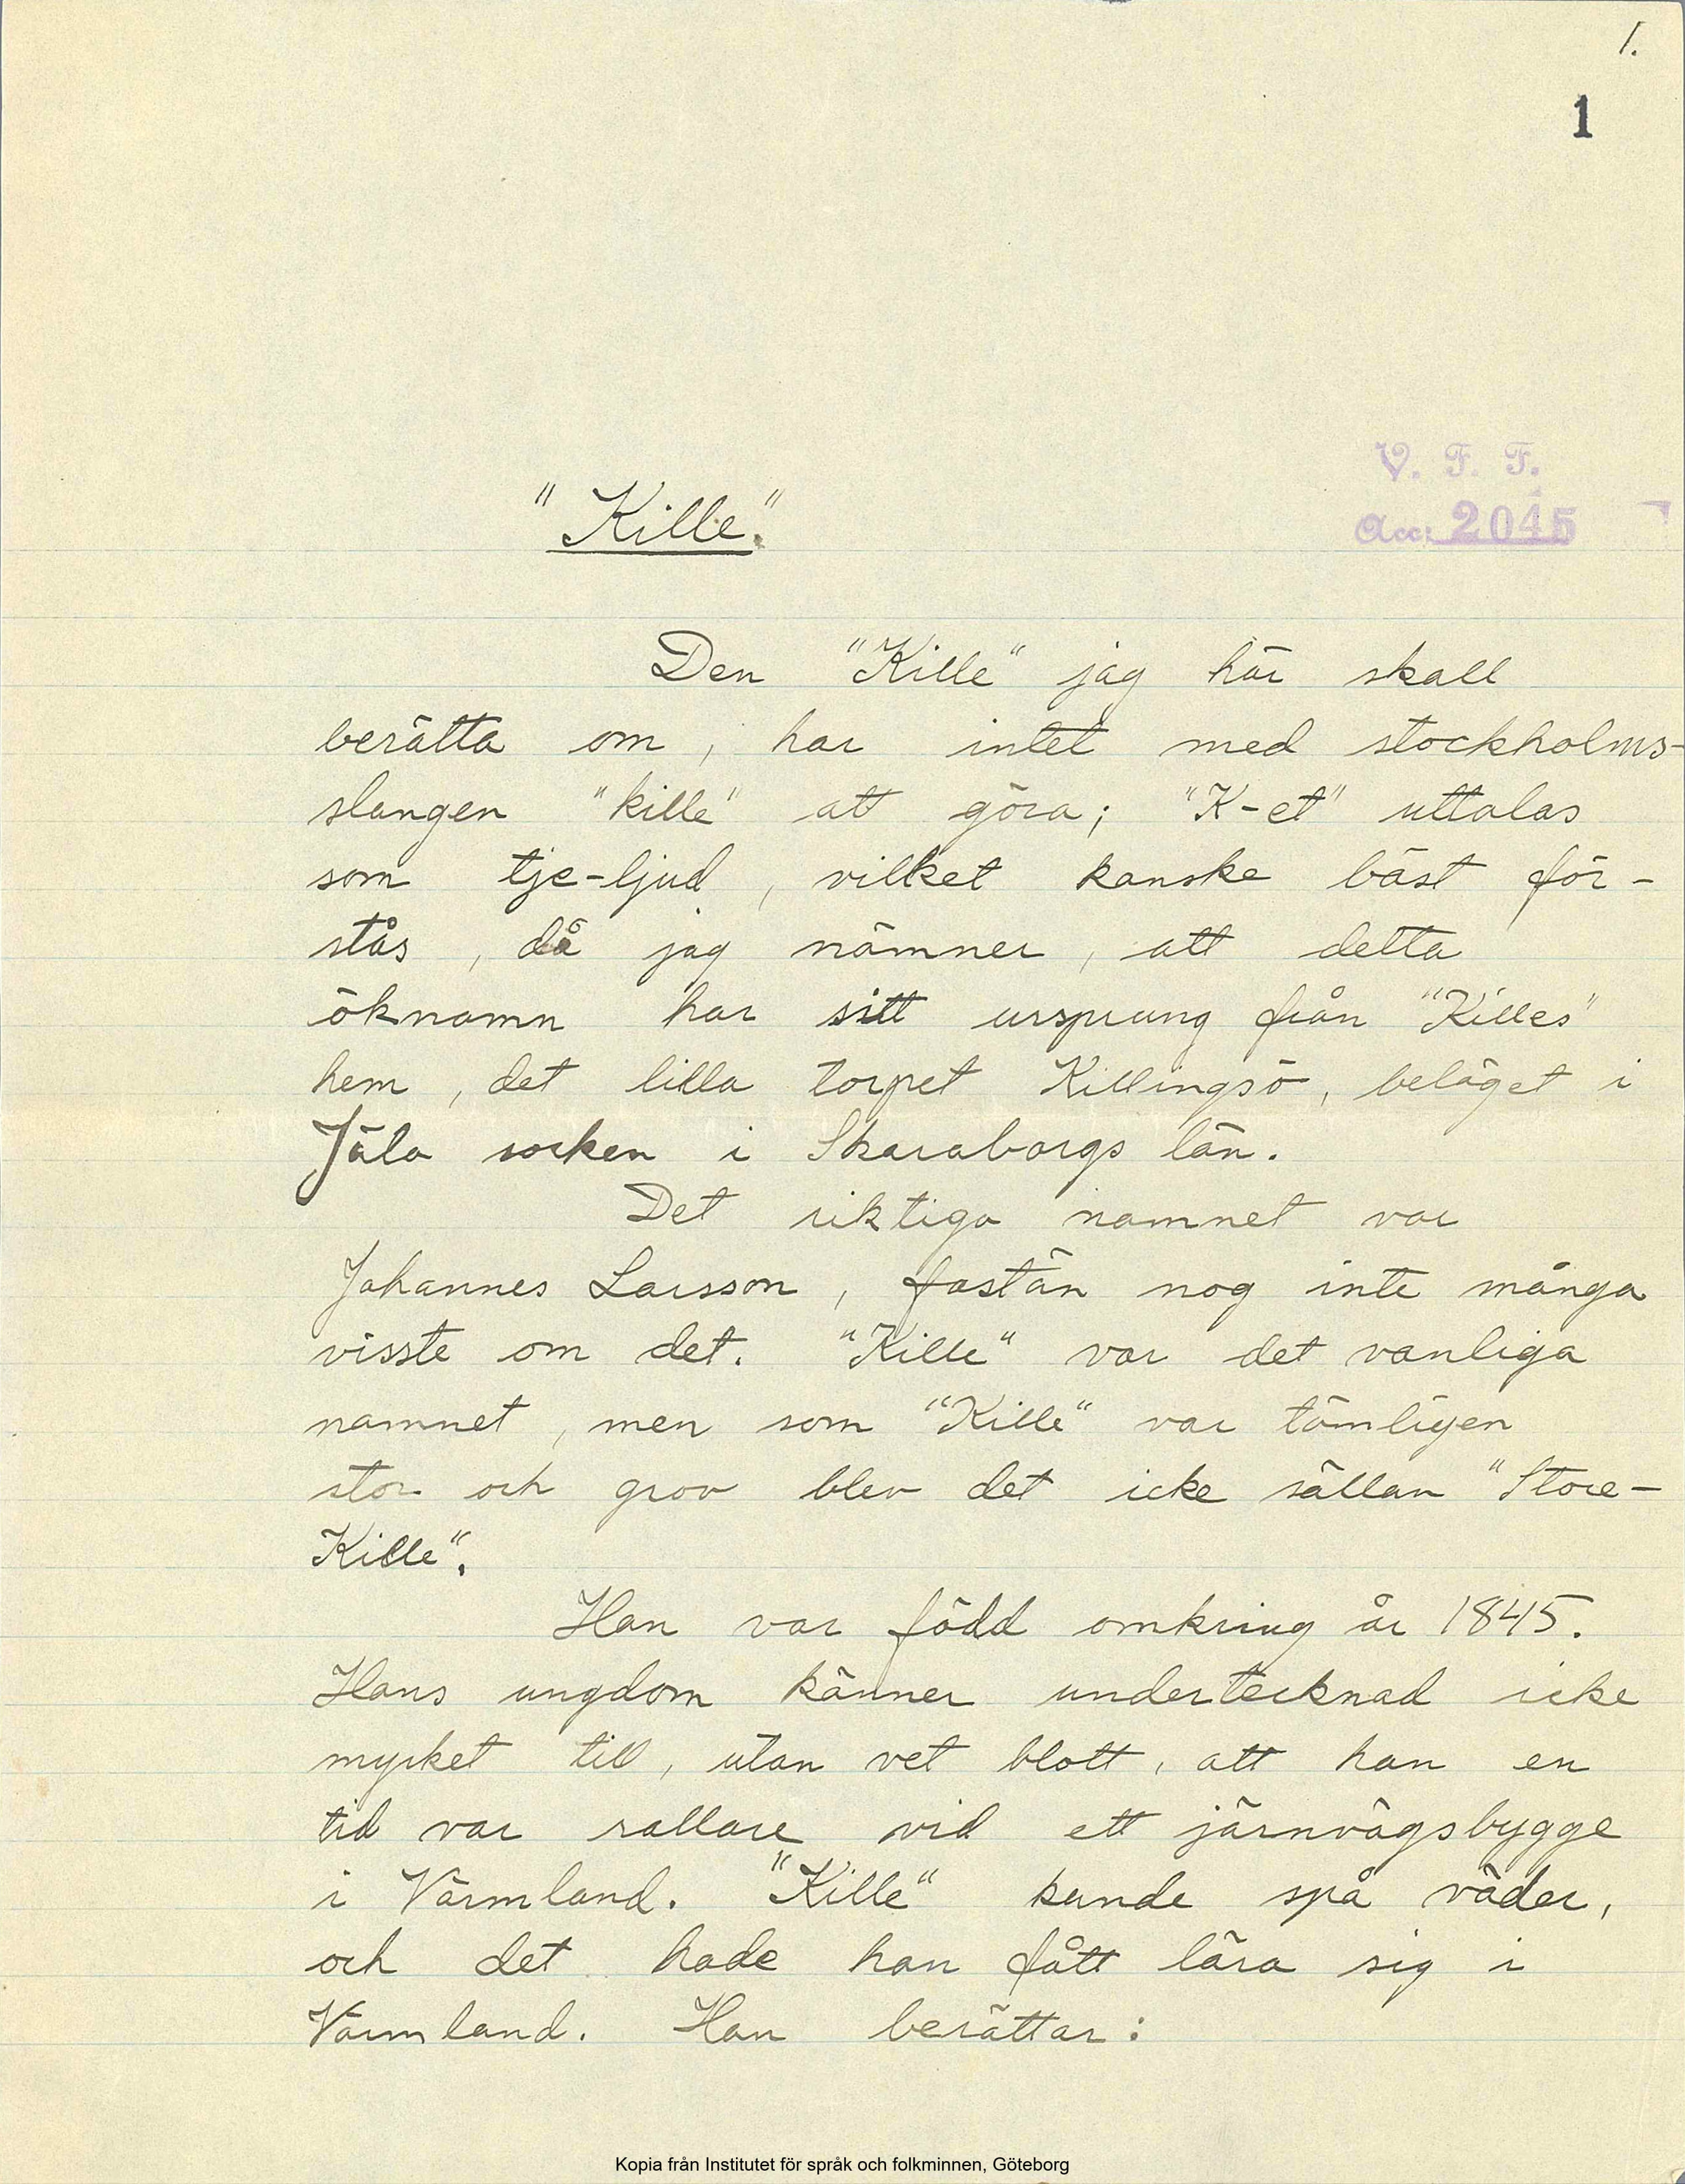 1.
1
V. F. F.
Acc: 2045
"Kille".
Den "Kille" jag här skall
berätta om, har intet med stockholms-
slangen "kille" att göra; "K-et" uttalas
som tje-ljud, vilket kanske bäst för-
stås, då jag nämner, att detta
öknamn har sitt ursprung från "Killes"
hem, det lilla torpet Killingsö, beläget i
Jäla socken i Skaraborgs län.
Det riktiga namnet var
Johannes Larsson, fastän nog inte många
visste om det. "Kille" var det vanliga
namnet, men som "Kille" var tämligen
stor och grov blev det icke sällan "Store-
Kille".
Han var född omkring år 1845.
Hans ungdom känner undertecknad icke
mycket till, utan vet blott, att han en
tid var rallare vid ett järnvägsbygge
i Värmland. "Kille" kunde spå väder,
och det hade han fått lära sig i
Värmland. Han berättar:
Kopia från Institutet för språk och folkminnen, Göteborg